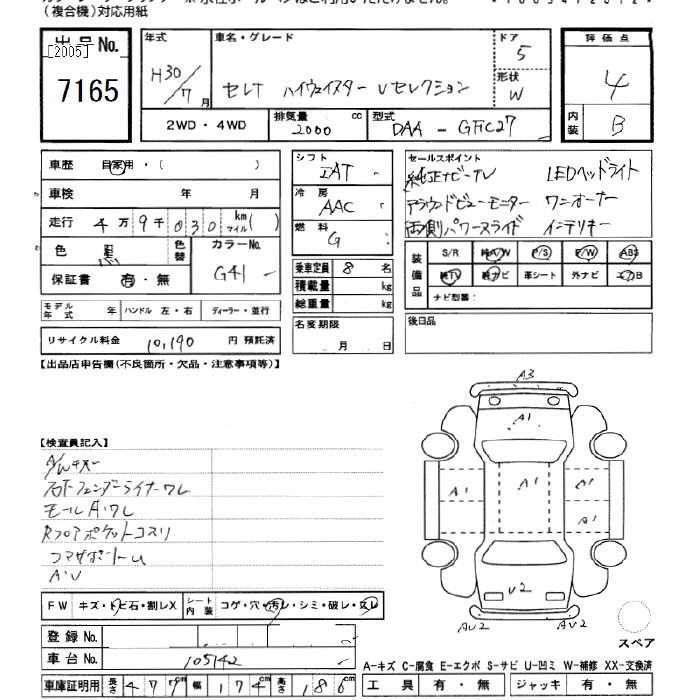 (複合機)対応用紙
出品No.
[2005]
7165
年式
H30/7月
車名・グレード
セレナ ハイウェイスター Vセレクション
ドア
5
形状
W
評価点
4
内装
B
2WD・4WD
排気量
2000 cc
型式
DAA - GFC27
車歴 自家用・( )
車検 年 月
走行 4万9千030 km マイル( )
色 黒 色替
カラーNo. G41
保証書 有・無
モデル年式 年 ハンドル 左・右 ディーラー・並行
リサイクル料金 10,190 円 預託済
シフト
IAT
冷房
AAC
燃料
G
乗車定員 8 名
積載量 kg
総重量 kg
名変期限
月 日
セールスポイント
純正ナビ・TV LEDヘッドライト
アラウンドビューモニター ワンオーナー
両側パワースライド インテリキー
装備品
S/R 純A/W P/S P/W ABS
純TV 純ナビ 革シート 外ナビ エアB
ナビ型番:
後日品
【出品店申告欄(不良箇所・欠品・注意事項等)】
【検査員記入】
A/Wキズ
モール
A・U
FW キズ・トビ石・割レX
シート内装 コゲ・穴・汚レ・シミ・破レ・スレ
登録No.
車台No. 105142
車庫証明用 長さ 477cm 幅 174cm 高さ 186cm
A3
A1
A1
A1
A1
A1
V2
AU2
AU2
スペア
A-キズ C-腐食 E-エクボ S-サビ U-凹ミ W-補修 XX-交換済
工具 有・無 ジャッキ 有・無